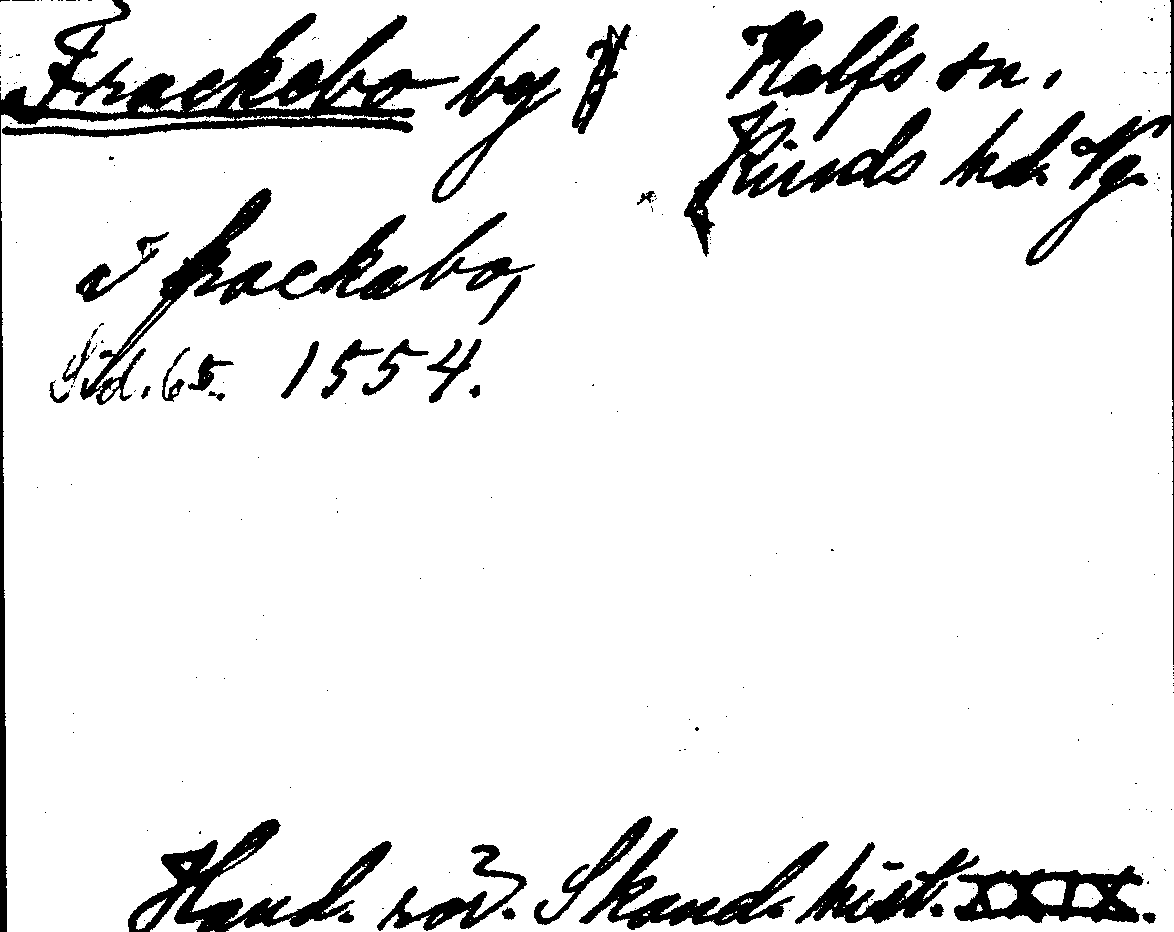 Frackebo by Kalfs sn.
Kinds hd. Vg.
i frackabo,
Sid. 65. 1554.
Hand. rör. Skand. hist. XXIX.